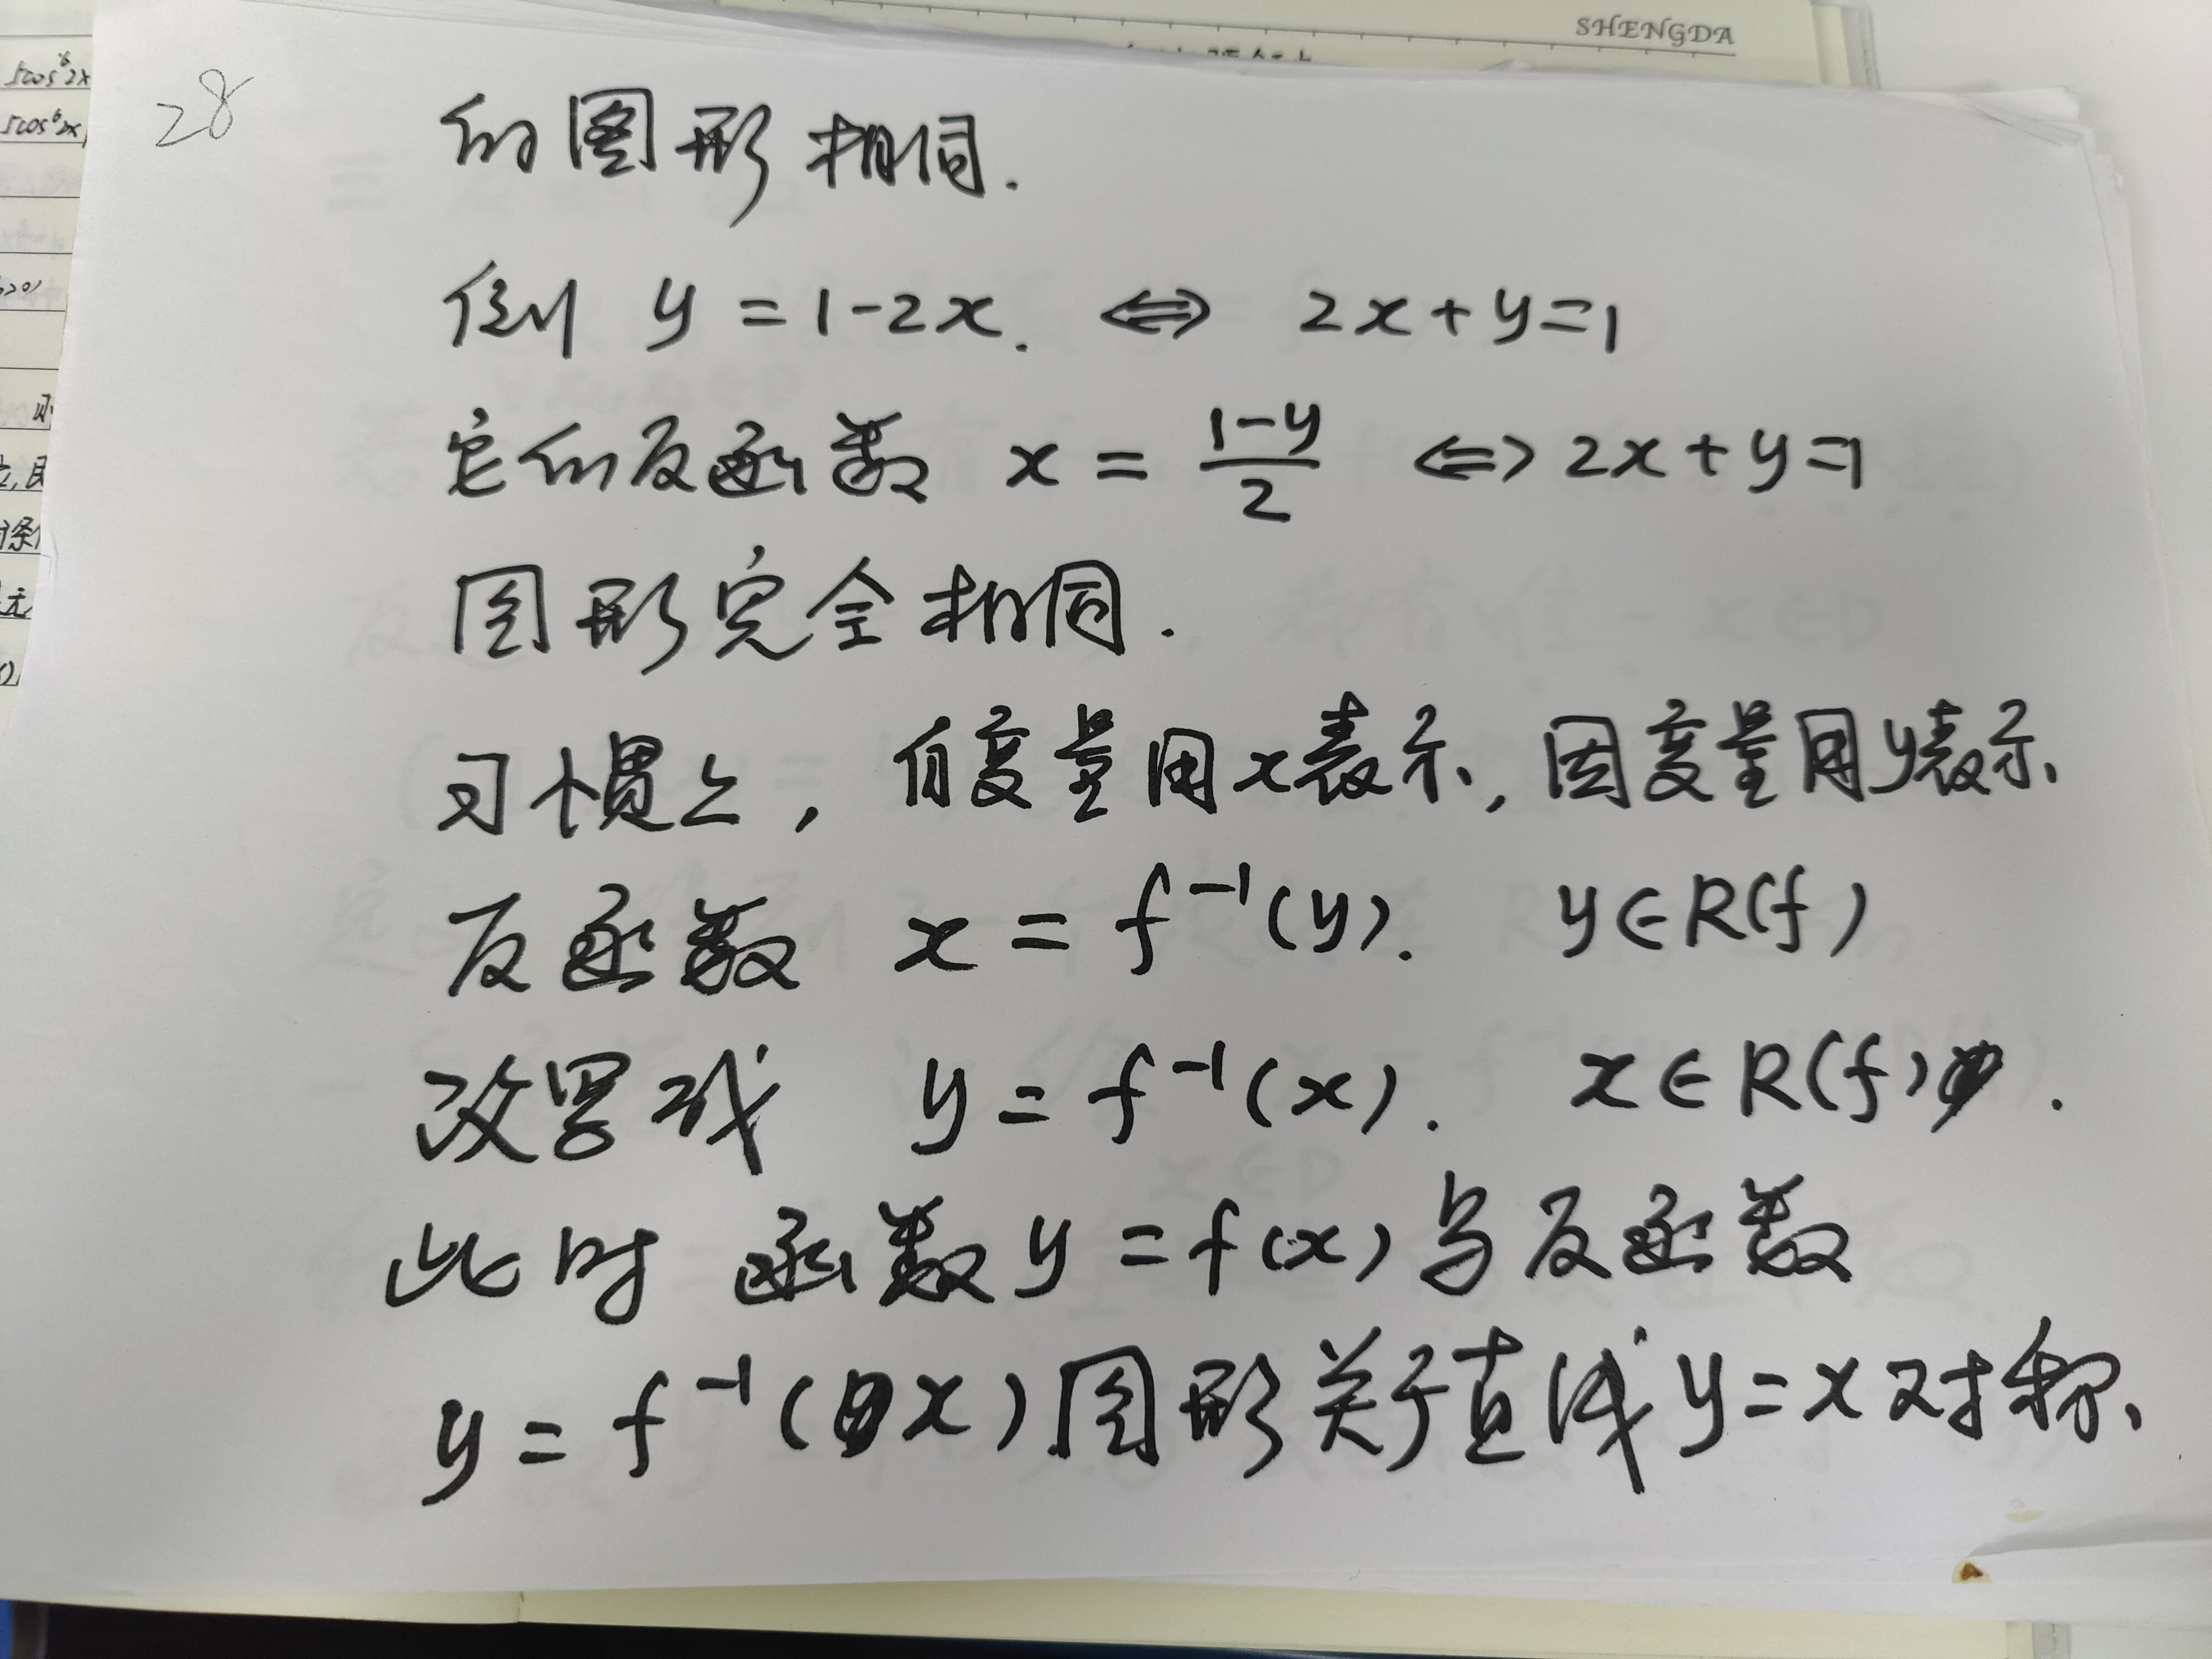 SHENGDA
28
的图形相同.
例 y = 1-2x. ⇔ 2x+y=1
它的反函数 x = \frac{1-y}{2} ⇔ 2x+y=1
图形完全相同.
习惯上, 自变量用x表示, 因变量用y表示.
反函数 x = f⁻¹(y). y∈R(f)
改写成 y = f⁻¹(x). x∈R(f).
此时 函数 y = f(x) 与反函数
y = f⁻¹(x) 图形关于直线 y=x 对称.